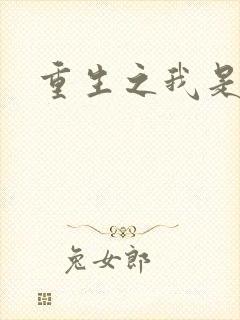 重生之我是
兔女郎